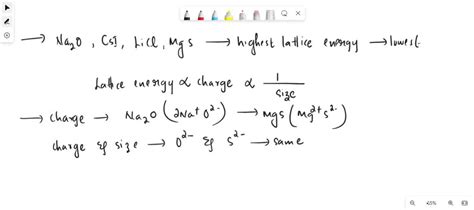 → Na₂O, CsI, LiCl, MgS → highest lattice energy → lowest.
Lattice energy ∝ charge ∝ 1/size
→ charge → Na₂O (2Na⁺ O²⁻) → MgS (Mg²⁺ S²⁻)
charge & size → O²⁻ & S²⁻ → same
45%